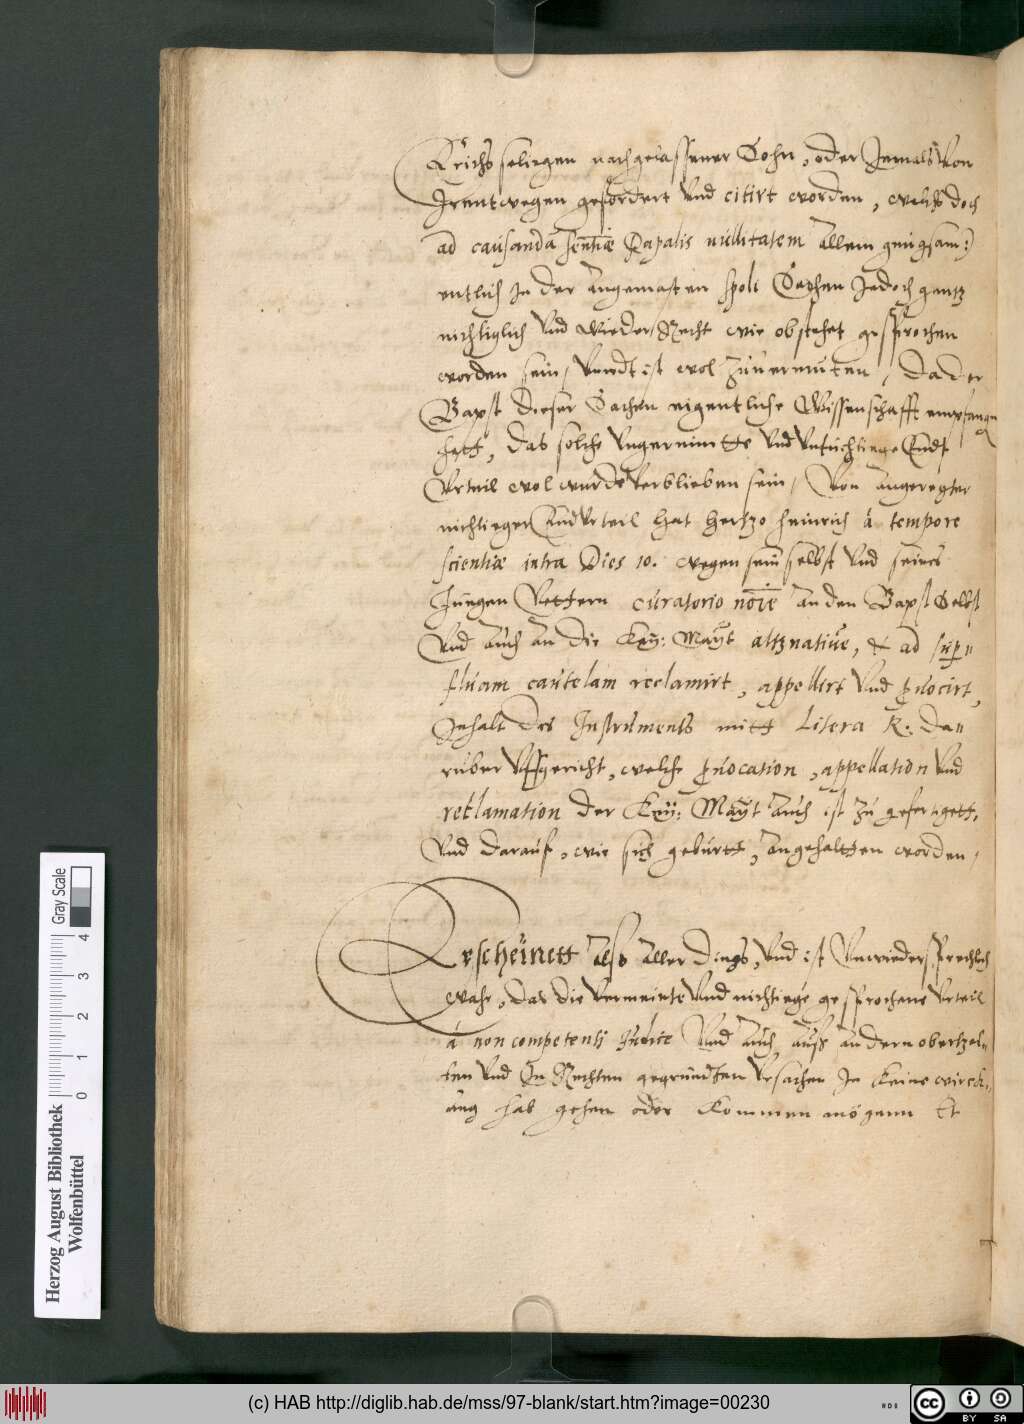 Erichs seligen nachgelassener Sohn, oder Jemals von
Irentwegen gefördert vnd citirt worden, welchs doch
ad causanda sententiæ Papalis nullitatem allein genugsam:)
entlich In der angemasten spoli Sachen Jedoch gantz
nichtiglich vnd wieder Recht wie obstehet gesprochen
worden sein, vnndt ist wol zuuermuten, da der
Bapst dieser Sachen eigentliche Wissenschafft empfangen
hett, das solche vngereimtte vnd vntüchtiege Endt
Vrteil wol wurde verblieben sein, Von angeregter
nichtieger Endvrteil hat Hertzo Heinrich à tempore
scientiæ intra Dies 10. wegen sein selbst vnd seines
Jungen Vettern curatorio no͞ie an den Bapst Selbst
vnd auch an die Key: Mayt altnatiue, & ad super=
fluam cautelam reclamirt, appellirt vnd prouocirt,
Inhalt des Instruments mitt Litera K. da=
rüber vffgericht, welche prouocation, appellation vnd
reclamation der Key: Mayt auch ist zu gefertigett,
vnd darauf, wie sich gebürtt, angehaltten worden,
Erscheinett also aller dings, vnd ist vnwiedersprechlich
wahr, das die vermeinte vnd nichtiege gesprochene vrteil
à non competenti Judice vnd auch auss andern obertzel=
ten vnd In Rechten gegründten vrsachen In keine wirck=
ung hab gehen oder kommen mögenn Et
Herzog August Bibliothek
Wolfenbüttel
0 1 2 3 4
Gray Scale
(c) HAB http://diglib.hab.de/mss/97-blank/start.htm?image=00230
cc BY SA